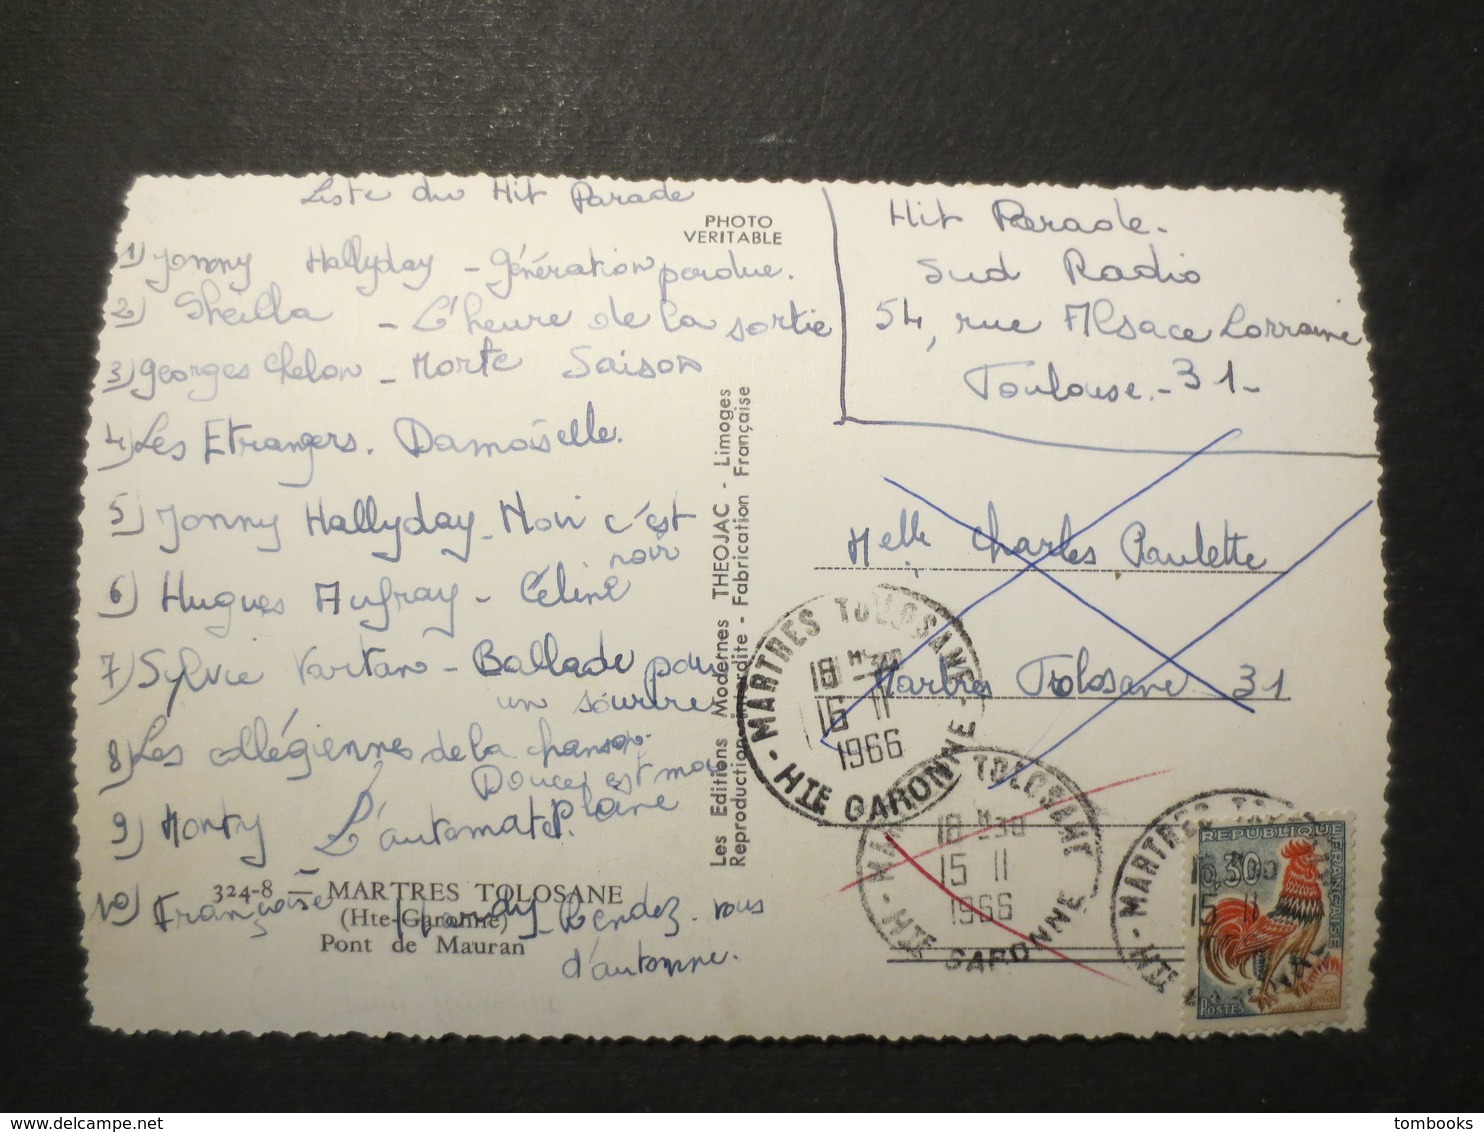 Liste du Hit Parade
1) Jonny Hallyday - Génération perdue.
2) Sheilla - L'heure de la sortie
3) Georges Chelon - Morte Saison
4) Les Etrangers. Damoiselle.
5) Jonny Hallyday - Noir c'est
noir
6) Hugues Aufray - Céline
7) Sylvie Vartan - Ballade pour
un sourire
8) Les collégiennes de la chanson.
Doucement
9) Monty L'automate.
10) Françoise Hardy - Rendez-vous
d'automne.
324-8 — MARTRES TOLOSANE
(Hte-Garonne)
Pont de Mauran
PHOTO
VERITABLE
Les Editions Modernes THEOJAC - Limoges
Reproduction interdite - Fabrication Française
Hit Parade.
Sud Radio
54, rue Alsace Lorraine
Toulouse - 31 -
Melle Charles Paulette
Martres Tolosane 31
MARTRES TOLOSANE
18 H 30
15 11
1966
- HTE GARONNE -
TOLOSANE
18 H 30
15 11
1966
- HTE GARONNE
MARTRES
15 11
REPUBLIQUE
FRANÇAISE
0,30
POSTES
tombooks